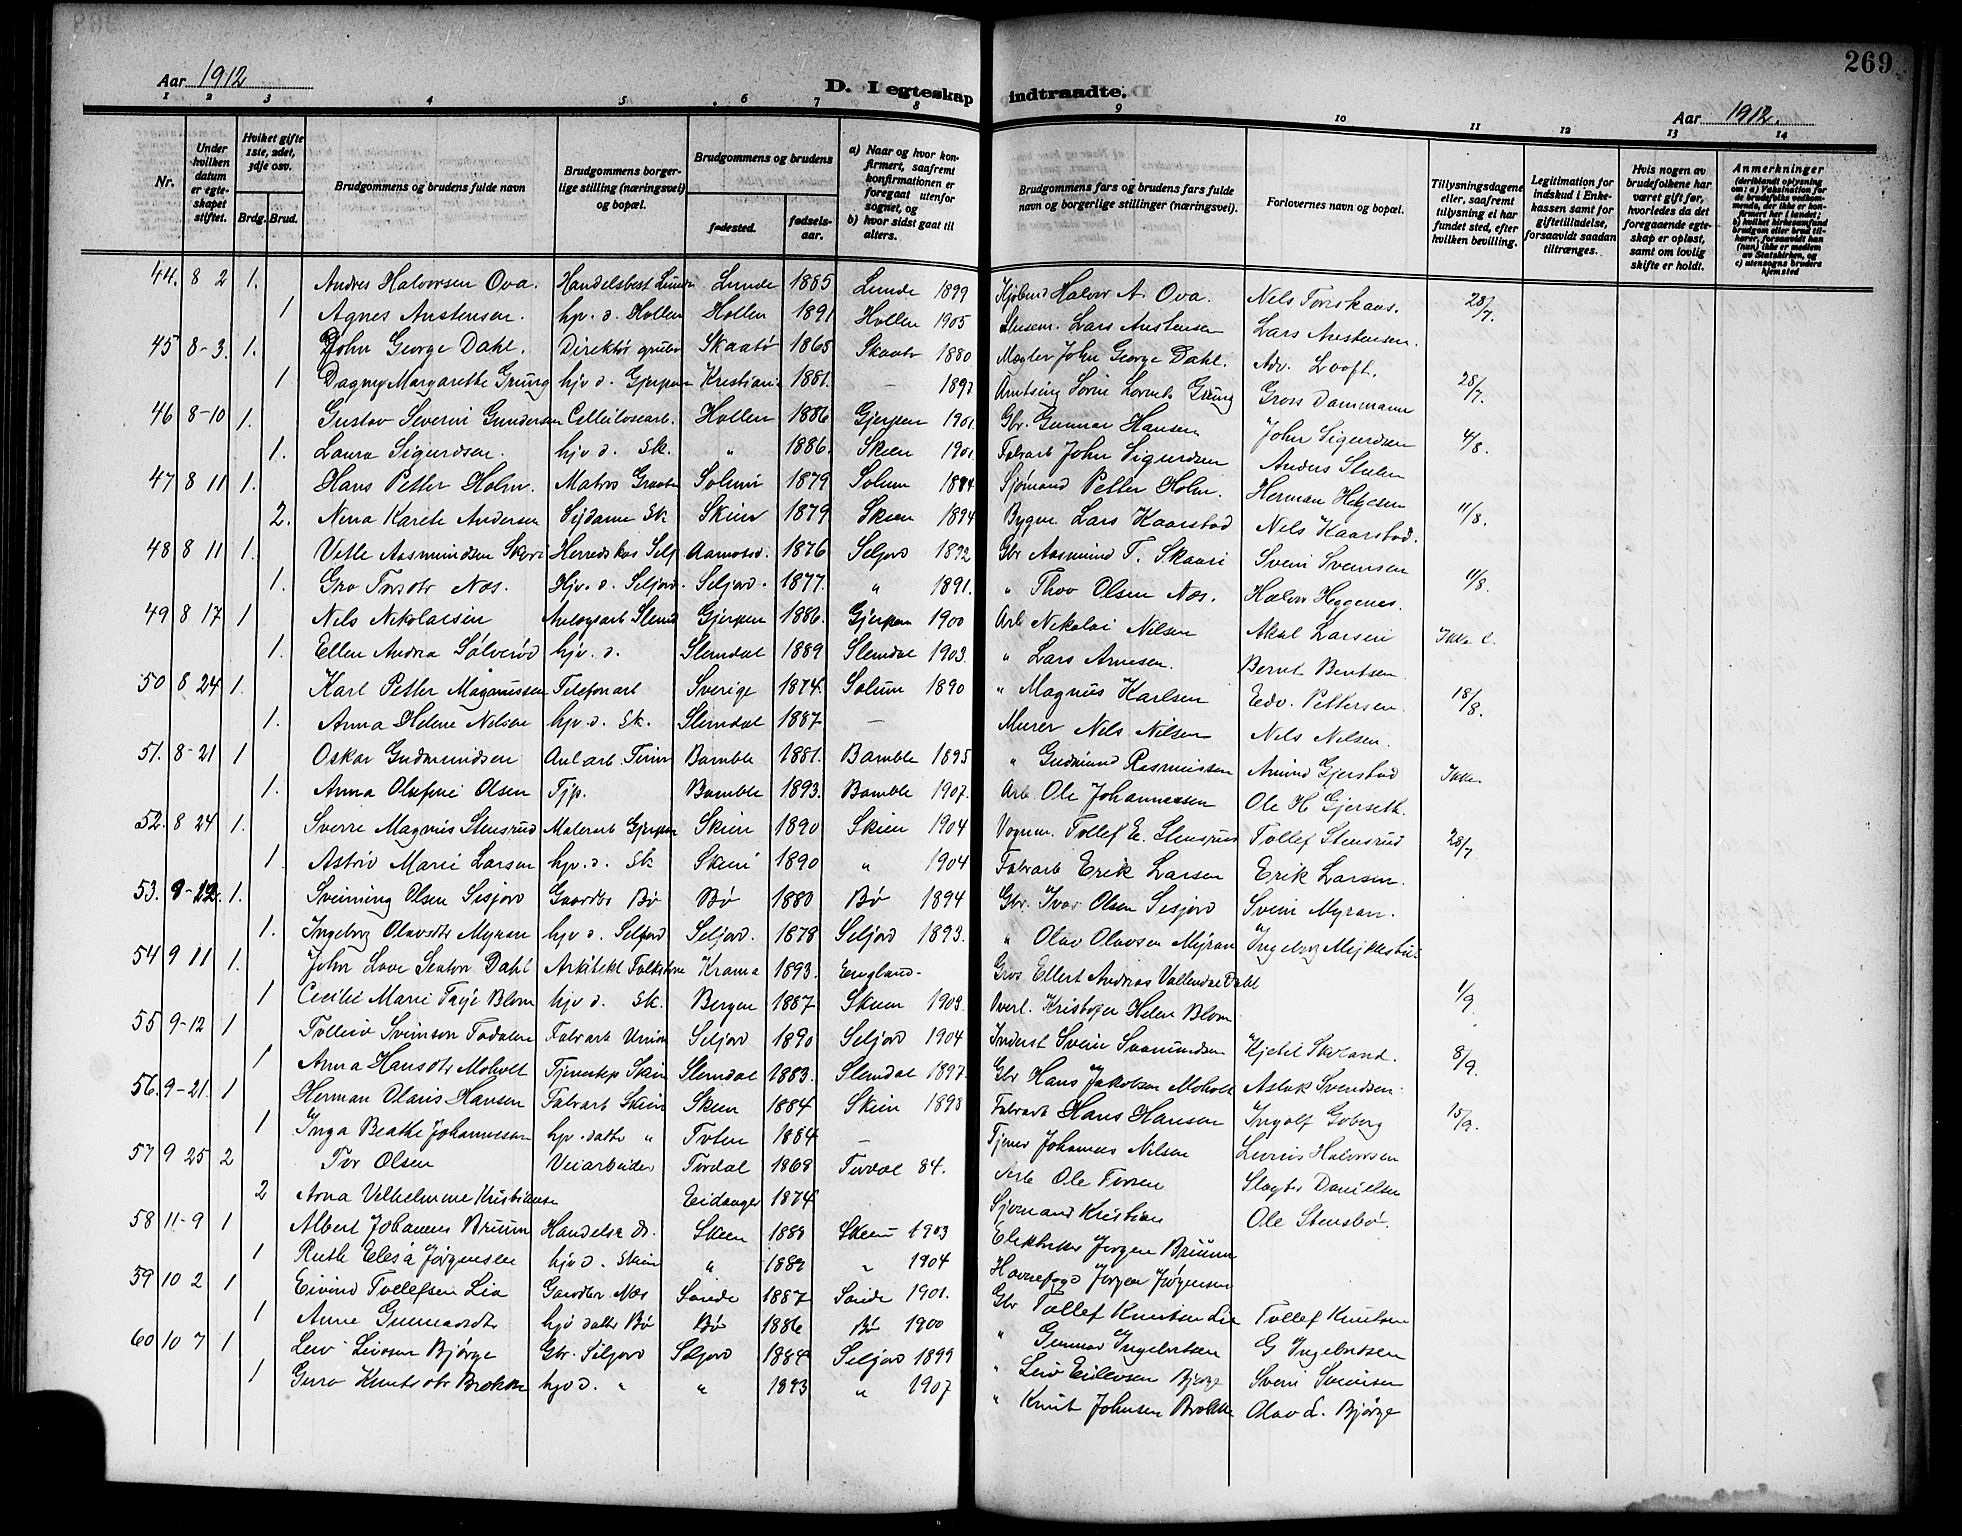 269
Aar 1912
D. I egteskap indtraadte.
Aar 1912.
1 2 3 4 5 6 7 8 9 10 11 12 13 14
Nr.
Under hvilken datum er egteskapet stiftet.
Hvilket gifte 1ste, 2det, 3dje osv.
Brdg. Brud.
Brudgommens og brudens fulde navn
Brudgommens borgerlige stilling (næringsvei) og bopæl.
Brudgommens og brudens
fødested. fødselsaar.
a) Naar og hvor konfirmert, saafremt konfirmationen er foregaat utenfor sognet, og
b) hvor sidst gaat til alters.
Brudgommens fars og brudens fars fulde navn og borgerlige stillinger (næringsvei).
Forlovernes navn og bopæl.
Tillysningsdagene eller, saafremt tillysning ei har fundet sted, efter hvilken bevilling.
Legitimation for indskud i Enkekassen samt for giftetilladelse, forsaavidt saadan tiltrænges.
Hvis nogen av brudefolkene har været gift før, hvorledes da det foregaaende egteskap er opløst, samt om lovlig skifte er holdt.
Anmerkninger
44. 8 2 1. Andres Halvorsen Ova. Handelsbest Lunde Lunde 1885 Lunde 1899 Halvor A. Ova. Nels Torskaas. 28/7.
1 Agnes Anstensen. hp. d. Hollen Hollen 1891 Hollen 1905 Lars Anstensen Lars Anstensen.
45 8-3. 1. John George Dahl. Direktør Skaatø 1865 Skaatø 1880 Mægler John George Dahl. Adv. Looft. 28/7.
1 Dagny Margarethe Grüng hjv d. Gjerpen Kristiania 1881. — 1897 Grüng Gross Dammann
46 8-10 1. Gustav Severin Gundersen Cellulosearb. Hollen 1886 Gjerpen 1901. Gbr. Gunnar Hansen John Sigurdsen 4/8.
1. Laura Sigurdsen. hjv d. Sk. " 1886. Skien 1901. Fabrarb John Sigurdsen Anders
47 8 11 1. Hans Petter Holm. Matros Solum 1879 Solum 1894 Sjømand Petter Holm. Herman Helgesen 11/8.
2. Nina Karete Andersen Sk Skien 1879 Skien 1894 Bygm. Lars Kaarstad Nels Kaarstad.
48 8 11 1. Vetle Aasmundsen Skori Herredskas Selj Aamotsd. 1876 Seljord 1892 Gbr Aasmund T. Skaari Svein Svensen 11/8.
1. Gro Torsdtr Næs. Hjv. d. Seljord. Seljord. 1877. " 1891. " Thov Olsen Næs. Halvor Heggenes.
49 8 17 1 Nels Nikolaisen Gjerpen 1886. Gjerpen 1900 Arb Nikolai Nilsen Aksel Larsen
1. Ellen Andrea Sølverød hjv. d. Slemdal 1889 Slemdal 1903. " Lars Arnesen. Bernt Berntsen.
50 8 24 1. Karl Petter Magnussen Telefonarb Sverige 1874. Solum 1890 " Magnus Karlsen Edv. Pettersen. 18/8.
1. Anna Helene Nelsen hjv. d. Sk. Slemdal 1887. — Murer Nels Nilsen Nels Nelsen.
51. 8-21 1 Oskar Gudmundsen Bamble 1881. Bamble 1895 " Gudmund Rasmussen Amund Gjerstad Ikke.
1. Anna Olufine Olsen Tjp. Bamble 1893. Bamble 1907. Arb Ole Johannessen Ole H Gjerseth.
52. 8 24 1. Sverre Magnus Stensrud Malerarb Gjerpen Skien 1890 Skien 1904 Vognm. Tollef E. Stensrud Tollef Stensrud 28/7
1. Astrid Marie Larsen hjv. d. Sk Skien 1890 " 1904 Fabrarb Erik Larsen Erik Larsen.
53. 9-12. 1. Sveinung Olsen Sisjord Gaardbr Bø Bø 1880 Bø 1894 Gbr. Ivar Olsen Sisjord Svein Myran.
1. Ingeborg Olavsdtr Myran hjv d. Seljord Seljord. 1878 Seljord 1893. " Olav Olavsen Myran Ingebreg
54 9 11 1. John Love Seaton Dahl Arkitekt Folkstone 1893. England. Gros Ellert Andreas Dahl 1/9.
1 Cecilie Marie Faye Blom hjv d. Sk. Bergen 1887. Skien 1903. Helen Blom
55 9-12 1 Tolleiv Sveinson Fabrarb Union Seljord 1890 Seljord 1904 Inderst Svein Saamundsen Kjetil 8/9.
1 Anna Hansdtr Moholt Tjenestep Skien Slemdal 1883. Slemdal 1897. Gbr Hans Jakobsen Moholt Aslak Svendsen.
56. 9-21. 1 Herman Olaus Hansen Fabrarb Skien Skien 1884 Skien 1898 Fabrarb Hans Hansen Ingolf Goberg 15/9.
1 Inga Beathe Johannessen hjv. datter " Toten 1884 — Tjener Johannes Nilsen Halvorsen
57 9 25 2 Tor Olsen Veiarbeider Tørdal 1868 Tørdal 84. Arb Ole Torsen Slagter Danielsen
2 Anna Vilhelmine Kristiansen Eidanger 1874 Sjømand Kristian Ole Stensbø.
58 11-9 1 Albert Johannes Bruun Skien 1889 Skien 1903 Elektriker Jørgen Bruun
1 Ruth Elesa Jørgensen hjv d. Skien " 1889 " 1904 Havnefogd Jørgen Jørgensen
59 10 2 1 Eivind Tollefsen Lia Gaardbr Næs Sande 1887 Sande 1901. Gbr Tollef Knutsen Lie Tollef Knutsen
1 Anne Gunnarsdtr hjv datter Bø Bø 1886 Bø 1900 " Gunnar Ingebretsen G Ingebretsen
60 10 7 1 Leiv Leivson Bjørge Gbr. Seljord Seljord 1884 Seljord 1899 " Leiv Eilevsen Bjørge Svein Sveinsen
1 Gurro Knutsdtr Brokke hjv d. " " 1893 " 1907 " Knut Johnsen Brokke Olav L. Bjørge